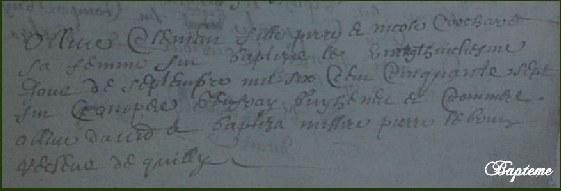 Ollive Cleman fille pierre et nicole Cochard
sa femme fut baptize le vingthuictiesme
Jour de septembre mil six Cent Cinquante sept
fut Compere et Commere
ollive david et baptiza missire pierre
de quilly
Bapteme